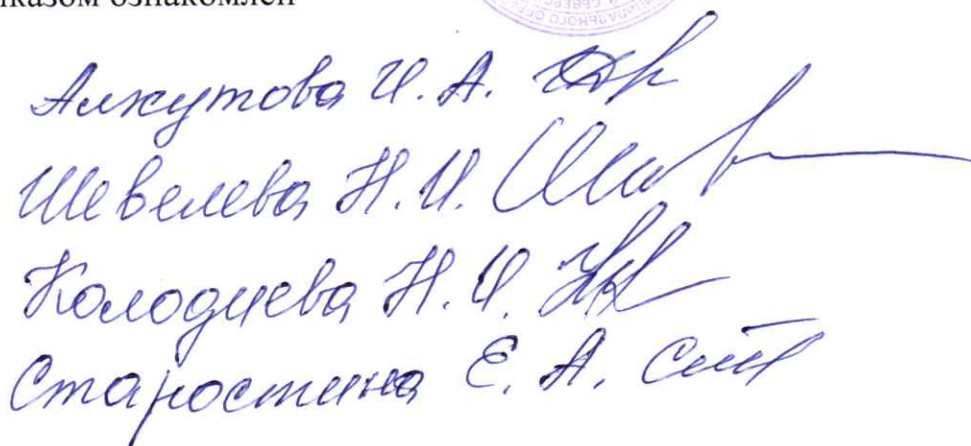 казом ознакомлен
Алкутова И. А.
Шевелева Н. И.
Колодиева Н. И.
Старостина Е. А.